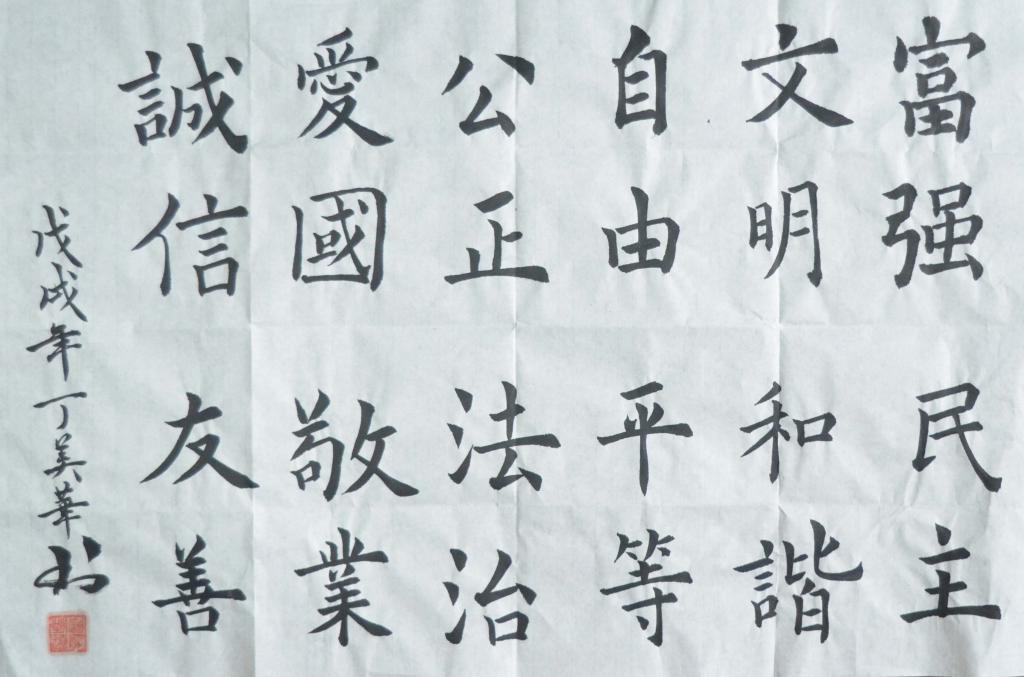 富强民主
文明和諧
自由平等
公正法治
愛國敬業
誠信友善
戊戌年丁美華书